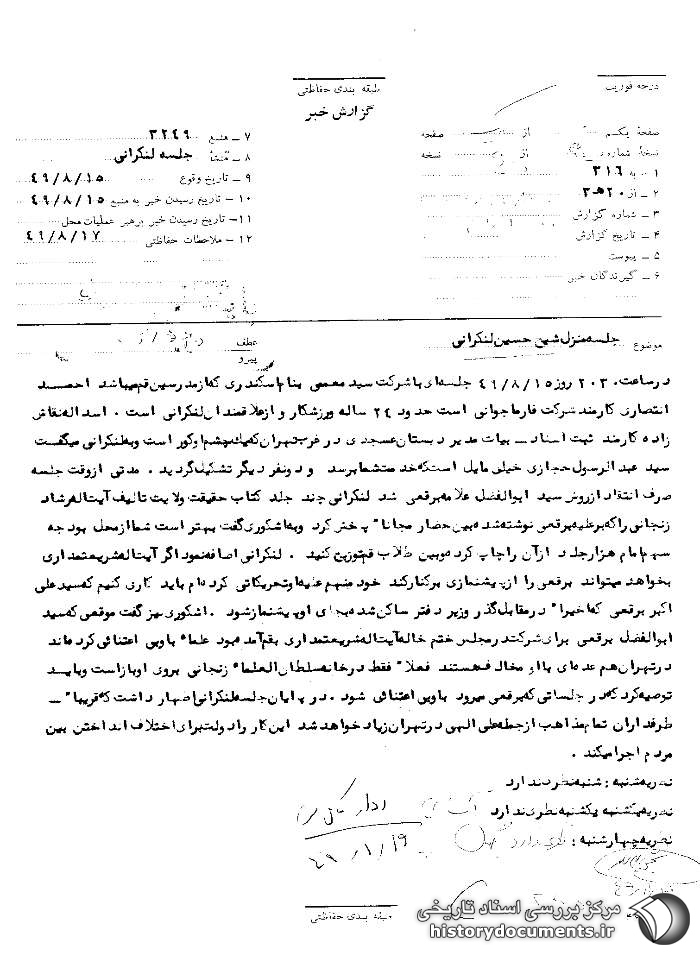 درجه فوریت
طبقه بندی حفاظتی
گزارش خبر
صفحه یکم از صفحه
نسخه شماره از نسخه
۱ – به ۳۱۶
۲ – از ۲۰ﻫ۳
۳ – شماره گزارش
۴ – تاریخ گزارش
۵ – پیوست
۶ – گیرندگان خبر
۷ – منبع ۳۲۴۹
۸ – منشأ جلسه لنکرانی
۹ – تاریخ وقوع ۴۹/۸/۱۵
۱۰ – تاریخ رسیدن خبر به منبع ۴۹/۸/۱۵
۱۱ – تاریخ رسیدن خبر برهبر عملیات محل
۱۲ – ملاحظات حفاظتی ۴۹/۸/۱۷
موضوع جلسه منزل شیخ حسین لنکرانی
عطف
پیرو
در ساعت ۲۰۳۰ روز ۴۹/۸/۱۵ جلسه‌ای با شرکت سید معممی بنام اسکندری که از مدرسین قم میباشد احمد
انتصاری کارمند شرکت فار ماجوانی است حدود ۲۴ ساله ورزشکار و از علاقمندان لنکرانی است . اسداله نقاش
زاده کارمند ثبت اسناد – بیات مدیر دبستان مسجدی در غرب تهران که یک چشم او کور است و به لنکرانی میگفت
سید عبدالرسول حجازی خیلی مایل است که خدمت شما برسد و دو نفر دیگر تشکیل گردید . مدتی از وقت جلسه
صرف انتقاد از روش سید ابوالفضل علامه برقعی شد لنکرانی چند جلد کتاب حقیقت ولایت تالیف آیت‌اله رشاد
زنجانی را که بر علیه برقعی نوشته شده بین حضار مجانا" پخش کرد و به اشکوری گفت بهتر است شما از محل بودجه
سهم امام هزار جلد از آن را چاپ کرده و بین طلاب قم توزیع کنید . لنکرانی اضافه نمود اگر آیت‌اله شریعتمداری
بخواهد میتواند برقعی را از پیشنمازی برکنار کند خود منهم علیه او تحریکاتی کرده‌ام باید کاری کنیم که سید علی
اکبر برقعی که اخیرا" در مقابل گذر وزیر دفتر ساکن شده بجای او پیشنماز شود . اشکوری نیز گفت موقعی که سید
ابوالفضل برقعی برای شرکت در مجلس ختم خاله آیت‌اله شریعتمداری بقم آمده بود علما" باو بی اعتنائی کرده‌اند
در تهران هم عده‌ای با او مخالف هستند فعلا" فقط در خانه سلطان العلما" زنجانی بروی او باز است و باید
توصیه کرد که در جلساتی که برقعی میرود باو بی اعتنائی شود . در پایان جلسه لنکرانی اظهار داشت که قریبا" –
طرفداران تمام مذاهب از جمله علی الهی در تهران زیاد خواهد شد این کار را دولت برای اختلاف انداختن بین
مردم اجرا میکند .
نظریه شنبه : شنبه نظری ندارد
نظریه یکشنبه یکشنبه نظری ندارد
نظریه چهارشنبه :
طبقه بندی حفاظتی
مرکز بررسی اسناد تاریخی
historydocuments.ir